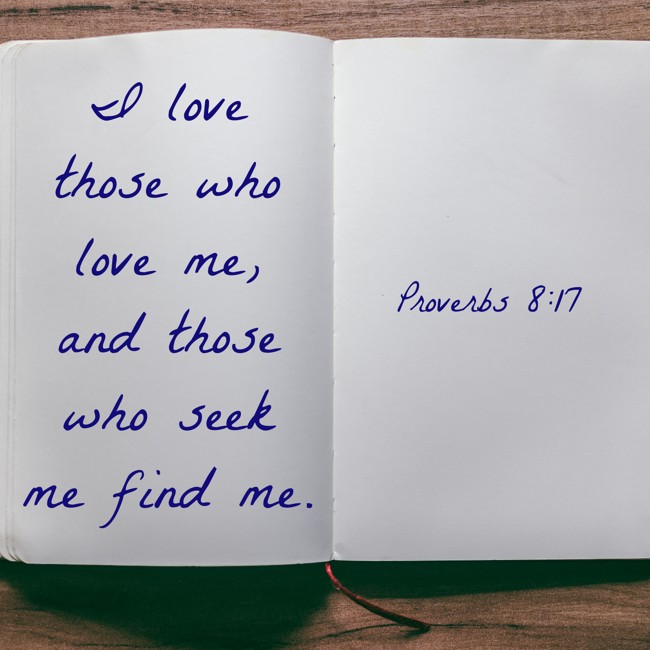 I love
those who
love me,
and those
who seek
me find me.
Proverbs 8:17